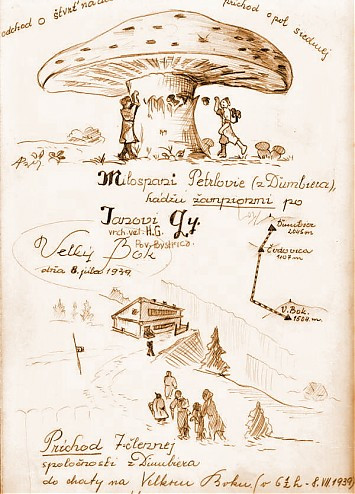 odchod o štvrť na
príchod o pol siedmej
Milospani Petrlovie (z Ďumbiera),
hádžu žampionmi po
Janovi Gy.
vrch. vet. H.G.
Pov. Bystrica.
Veľký Bok
dňa 8. júla 1939
Ďumbier
2045 m
Čertovica
1107 m
V. Bok.
1504. m.
Príchod 7-člennej
spoločnosti z Ďumbiera
do chaty na Veľkom Boku (v 6½ h - 8. VII. 1939)